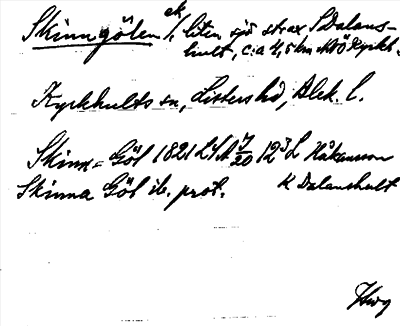 Skinngölen ek, liten sjö strax S Dalans-
hult, c:a 4,5 km NNÖ Kyrkh.
Kyrkhults sn, Listers hd, Blek. l.
Skinn-Göl 1821 LSA 7/20 12 3 L Håkansson
Skinna Göl ib. prot. K Dalanshult